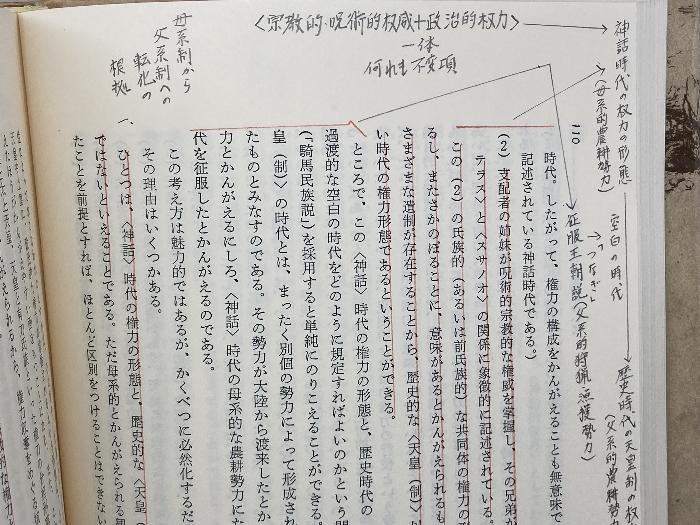 〈宗教的・呪術的权威＋政治的权力〉
一体
何れも不変項
神話時代の权力の形態
（母系的農耕勢力）
空白の時代
"つなぎ"
征服王朝説（父系的狩猟漁撈勢力）
歴史時代の天皇制の权
（父系的農耕勢
母系制から
父系制への
転化の
根拠
二〇
時代。したがって、権力の構成をかんがえることも無意味で
記述されている神話時代である。）
（2） 支配者の姉妹が呪術的宗教的な権威を掌握し、その兄弟
テラス〉と〈スサノオ〉の関係に象徴的に記述されている。
この（2）の氏族的（あるいは前氏族的）な共同体の権力の形
るし、またさかのぼることに、意味があるとかんがえられるも
さまざまな遺制が存在することから、歴史的な〈天皇（制）〉
い時代の権力形態であるということができる。
ところで、この〈神話〉時代の権力の形態と、歴史時代の
過渡的な空白の時代をどのように規定すればよいのかという問
（「騎馬民族説」）を採用すると単純にのりこえることができる。
皇（制）の時代とは、まったく別個の勢力によって形成され
たものとみなすのである。その勢力が大陸から渡来したとか
力とかんがえるにしろ、〈神話〉時代の母系的な農耕勢力にた
代を征服したとかんがえるのである。
この考え方は魅力的ではあるが、かくべつに必然化するだ
その理由はいくつかある。
一、
ひとつは、〈神話〉時代の権力の形態と、歴史的な〈天皇（
ではないといえることである。ただ母系的とかんがえられる
たことを前提とすれば、ほとんど区別をつけることはできない